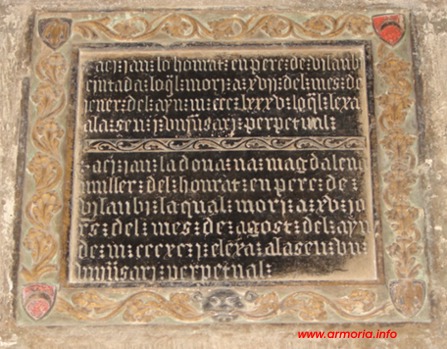 : aci : jau : lo honrat : en pere : de vilaub
i : ciutada : loql : mori : a : xvii : del : mes : de
jener : del : ayn : m : ccc : lxxxv : loql : lexa
ala : seu : i : univsari : perpetual :
: aci : jau : la dona : na : magdalena
muller : del : honrat : en pere : de :
vilaubi : la qual : mori : a : xv : jo
rs : del : mes : de : agost : del : ayn
de : m : cccxc : i : elexa : ala seu : un
univsari : perpetual :
www.armoria.info